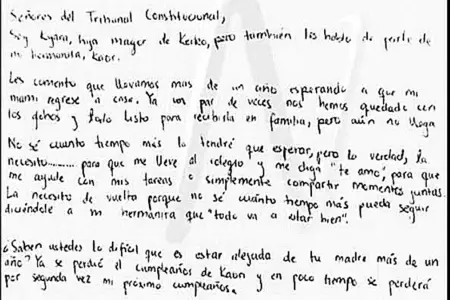 Señores del Tribunal Constitucional,
Soy Kyara, hija mayor de Keiko, pero también les hablo de parte de
mi hermanita, Kaori.
Les comento que llevamos más de un año esperando a que mi
mami regrese a casa. Ya un par de veces nos hemos quedado con
los globos y todo listo para recibirla en familia, pero aún no llega
No sé cuanto tiempo más la tendré que esperar, pero la verdad, la
necesito....... para que me lleve al colegio y me diga "te amo", para que
me ayude con mis tareas o simplemente compartir momentos juntas.
La necesito de vuelta porque no sé cuánto tiempo más pueda seguir
diciéndole a mi hermanita que "todo va a estar bien".
¿Saben ustedes lo difícil que es estar alejada de tu madre más de un
año? Ya se perdió el cumpleaños de Kaori y en poco tiempo se perderá
por segunda vez mi próximo cumpleaños.